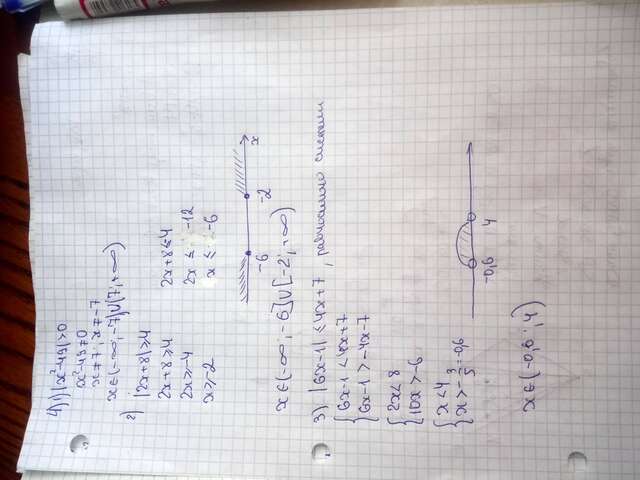 4) 1) |x²-49|>0
x²-49≠0
x≠7, x≠-7
x∈(-∞;-7)∪(7;+∞)
2) |2x+8|≥4
2x+8≥4 2x+8≤-4
2x≥-4 2x ≤ -12
x≥-2 x ≤ -6
-6 -2 x
x∈(-∞;-6]∪[-2;+∞)
3) |6x-1|<4x+7, равносильно системи
{6x-1<4x+7
{6x-1>-4x-7
{2x<8
{10x>-6
{x<4
{x>-3/5=-0,6
-0,6 4
x∈(-0,6;4)